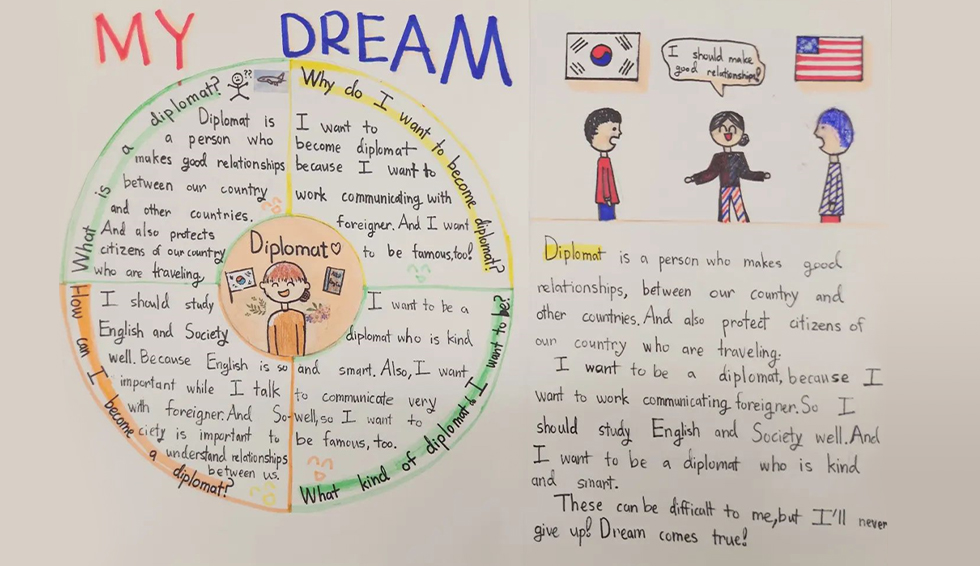 MY DREAM
What is a diplomat?
??
Diplomat is
a person who
makes good relationships
between our country
and other countries.
And also protects
citizens of our country
who are traveling.
Why do I want to become diplomat?
I want to
become diplomat
because I want to
work communicating with
foreigner. And I want
to be famous, too!
Diplomat♡
How can I become a diplomat?
I should study
English and Society
well. Because English is so
important while I talk
with foreigner. And So-
ciety is important to
understand relationships
between us.
What kind of diplomat do I want to be?
I want to be a
diplomat who is kind
and smart. Also, I want
to communicate very
well, so I want to
be famous, too.
I should make
good relationships!
Diplomat is a person who makes good
relationships, between our country and
other countries. And also protect citizens of
our country who are traveling.
I want to be a diplomat, because I
want to work communicating foreigner. So I
should study English and Society well. And
I want to be a diplomat who is kind
and smart.
These can be difficult to me, but I'll never
give up! Dream comes true!